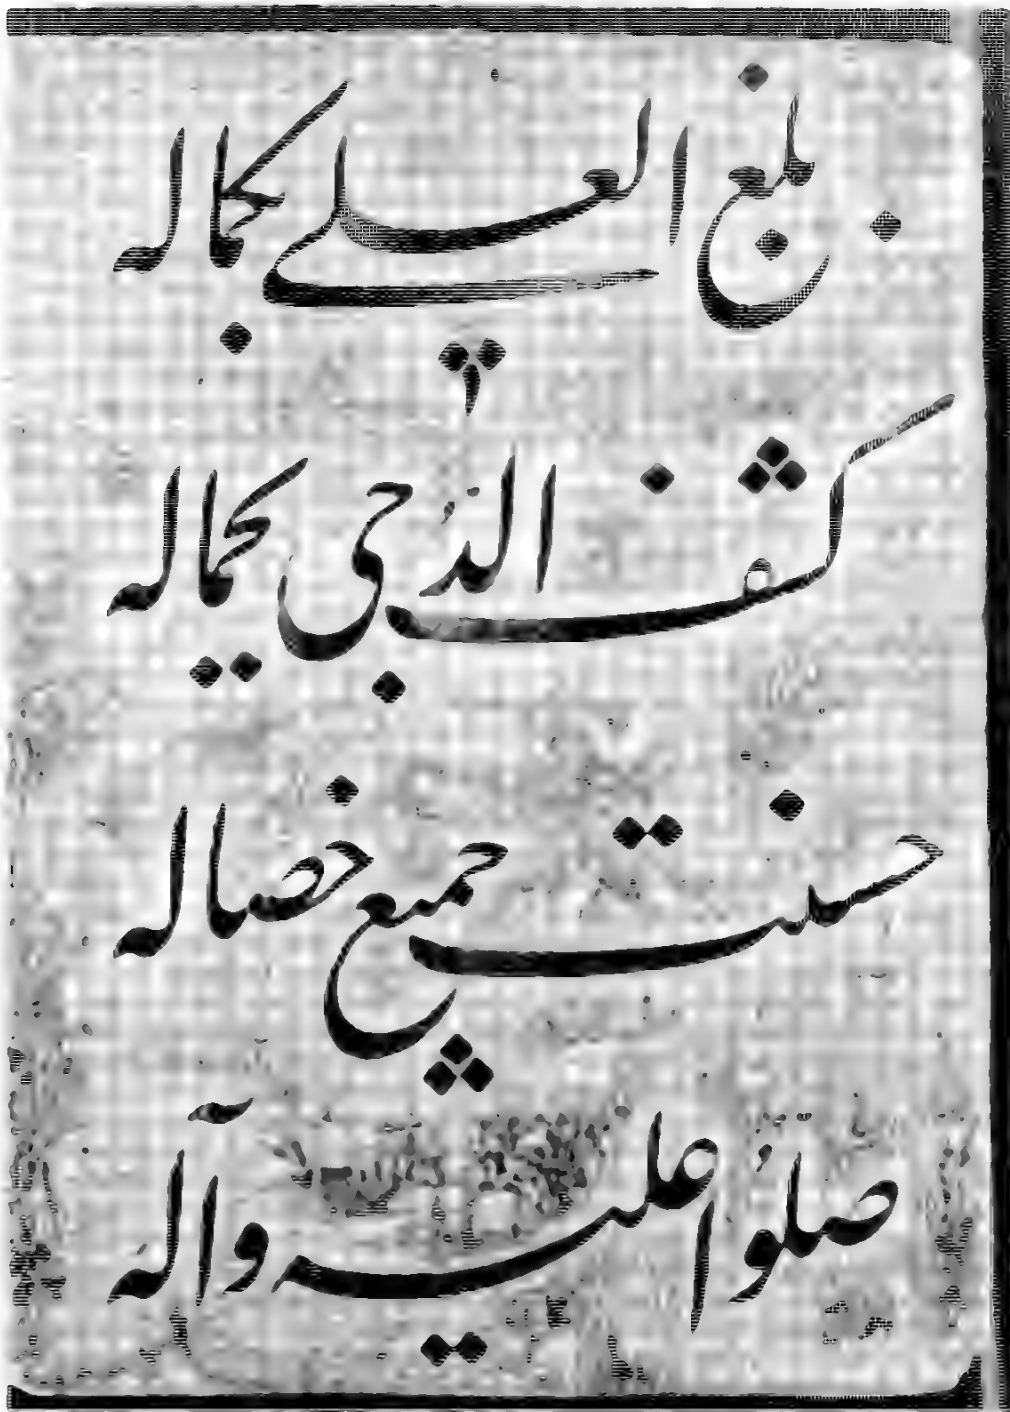 بلغ العلے بکمالہ
کشف الدُجیٰ بجمالہ
حسنت جمیع خصالہ
صلُّوا علیہ وآلہ